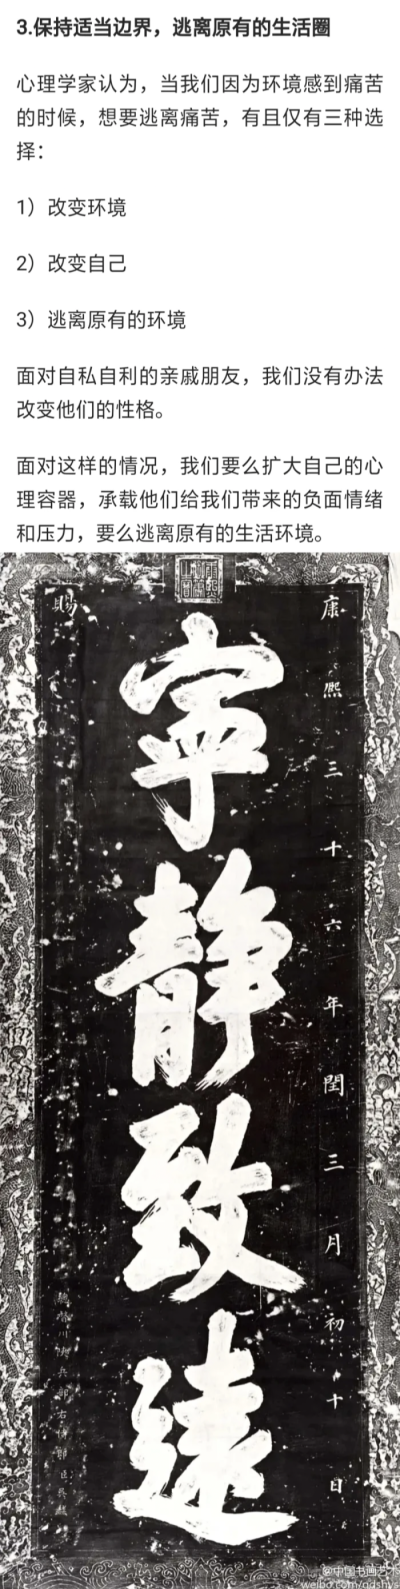 3.保持适当边界，逃离原有的生活圈
心理学家认为，当我们因为环境感到痛苦
的时候，想要逃离痛苦，有且仅有三种选
择：
1）改变环境
2）改变自己
3）逃离原有的环境
面对自私自利的亲戚朋友，我们没有办法
改变他们的性格。
面对这样的情况，我们要么扩大自己的心
理容器，承载他们给我们带来的负面情绪
和压力，要么逃离原有的生活环境。
康熙三十六年閏三月初十日
寧靜致遠
賜
@中国书画艺术